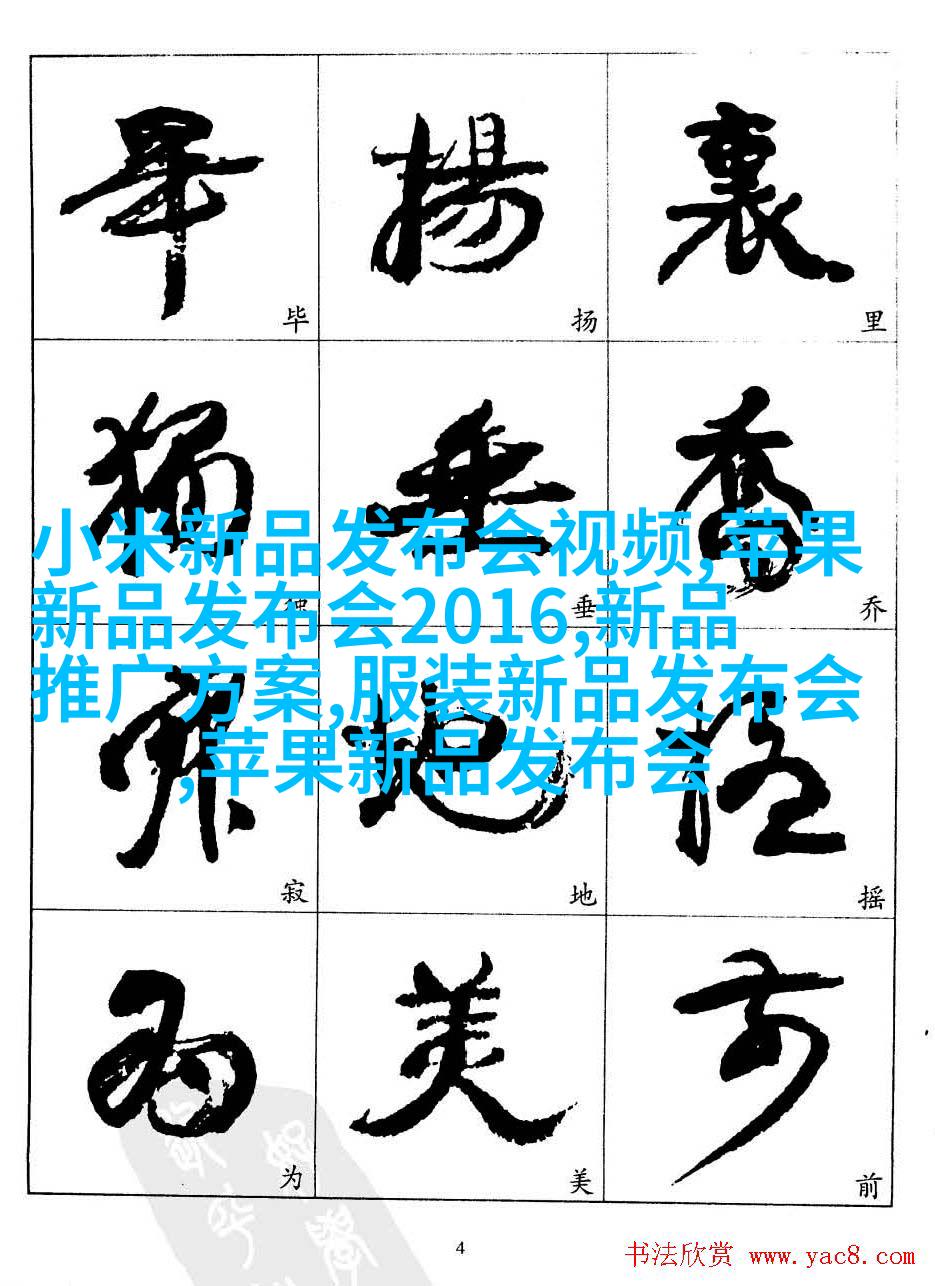 畢 揚 裏
毕 扬 里
獨 垂 喬
独 垂 乔
小米新品发布会视频,苹果
新品发布会2016,新品
推广方案,服装新品发布会
,苹果新品发布会
寂 地 摇
寂 地 摇
为 美 前
为 美 前
4
书法欣赏 www.yac8.com